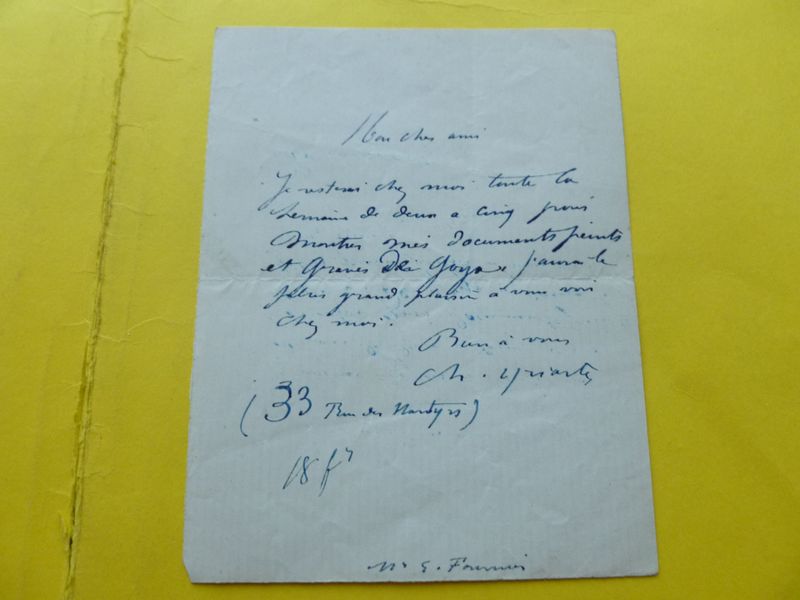 Mon cher ami
Je resterai chez moi toute la
semaine de deux a cinq pour
montrer mes documents peints
et gravés De Goya j'aurai le
plus grand plaisir à vous voir
chez moi.
Bien à vous
Ch. Yriarte
(33 Rue des Martyrs)
18 fr
Mr E. Fournier